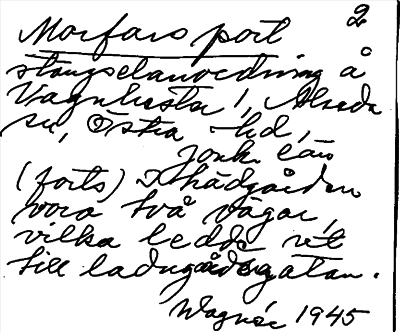 2
Morfars port
stängselanordning å
Vagnhester, Almesåkra
sn, Östra hd,
Jönk. län
(forts) I trädgården
vora två vägar,
vilka ledde ut
till ladugårdsgatan.
Wagnér 1945